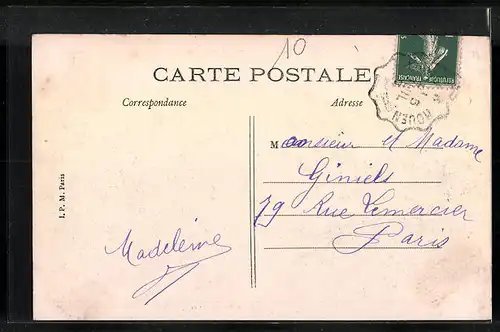 10
CARTE POSTALE
Correspondance
Adresse
Monsieur et Madame
Giniels
79 Rue Lemercier
Paris
Madeleine
I. P. M. Paris
ROUEN
REPUBLIQUE FRANÇAISE